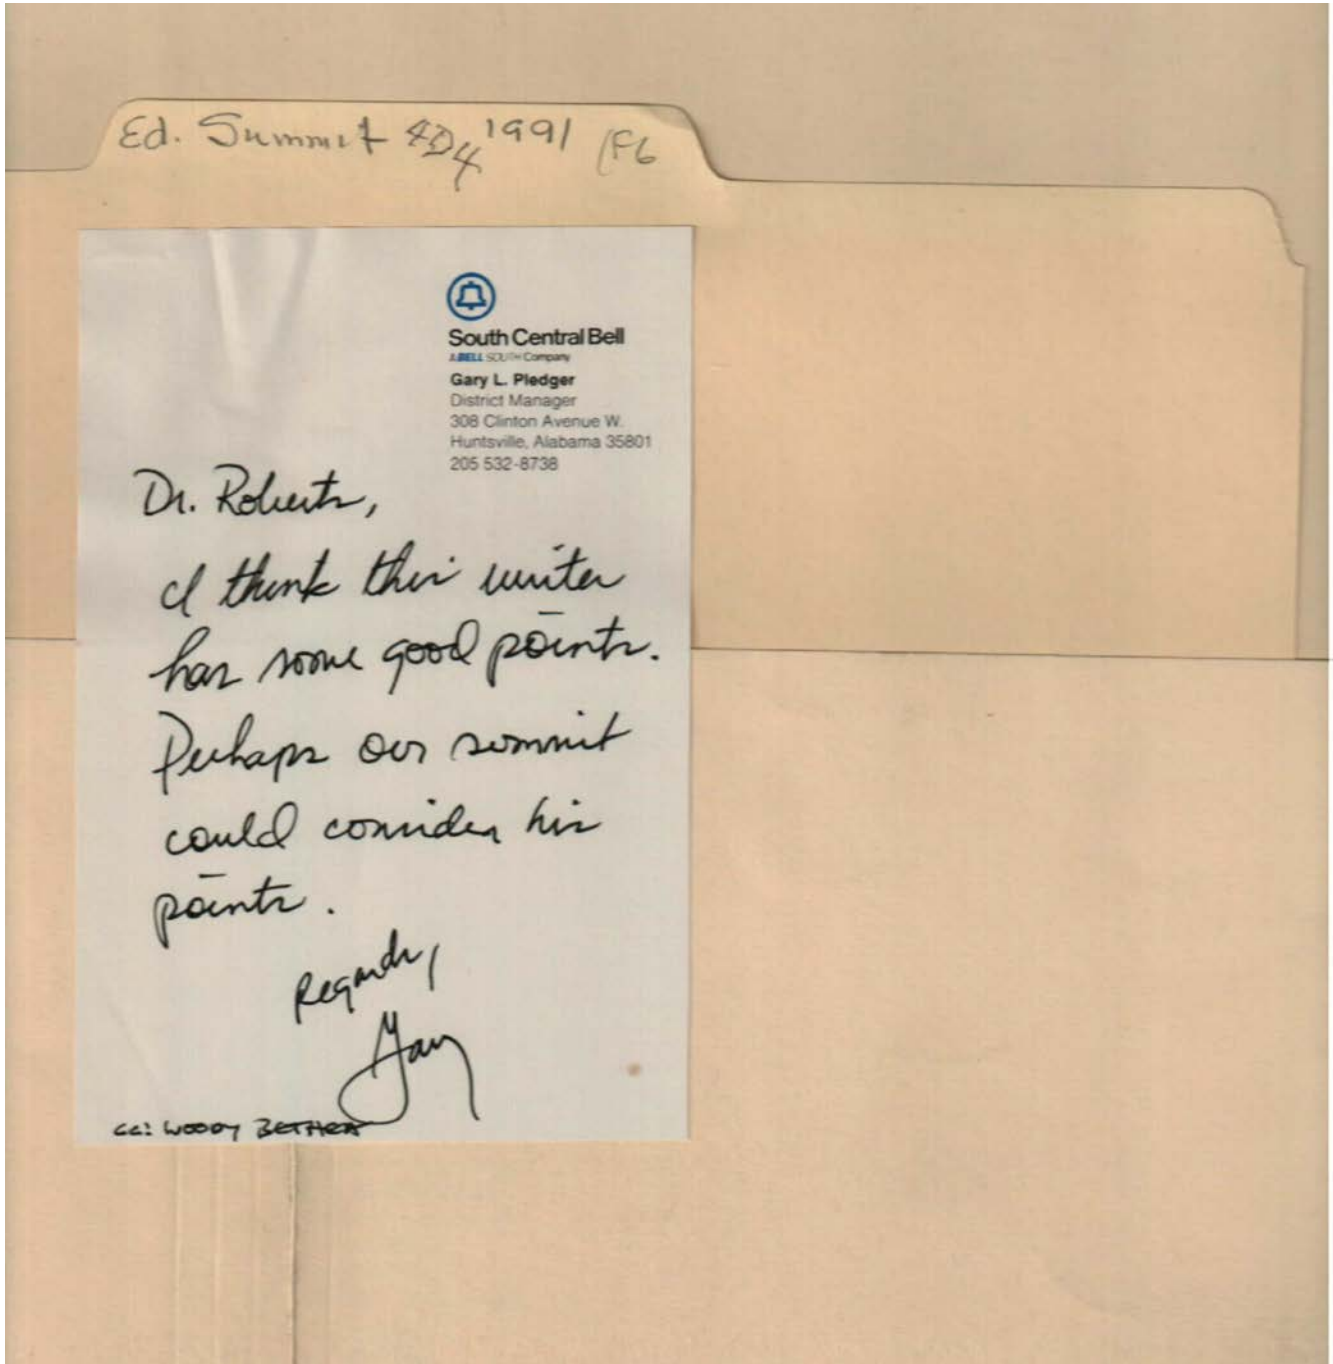 Ed. Summit 4D4 1991 (F6
South Central Bell
A BELL SOUTH Company
Gary L. Pledger
District Manager
308 Clinton Avenue W.
Huntsville, Alabama 35801
205 532-8738
Dr. Roberts,
I think this writer
has some good points.
Perhaps our summit
could consider his
points.
Regards,
Gary
cc: WOODY BETHEA